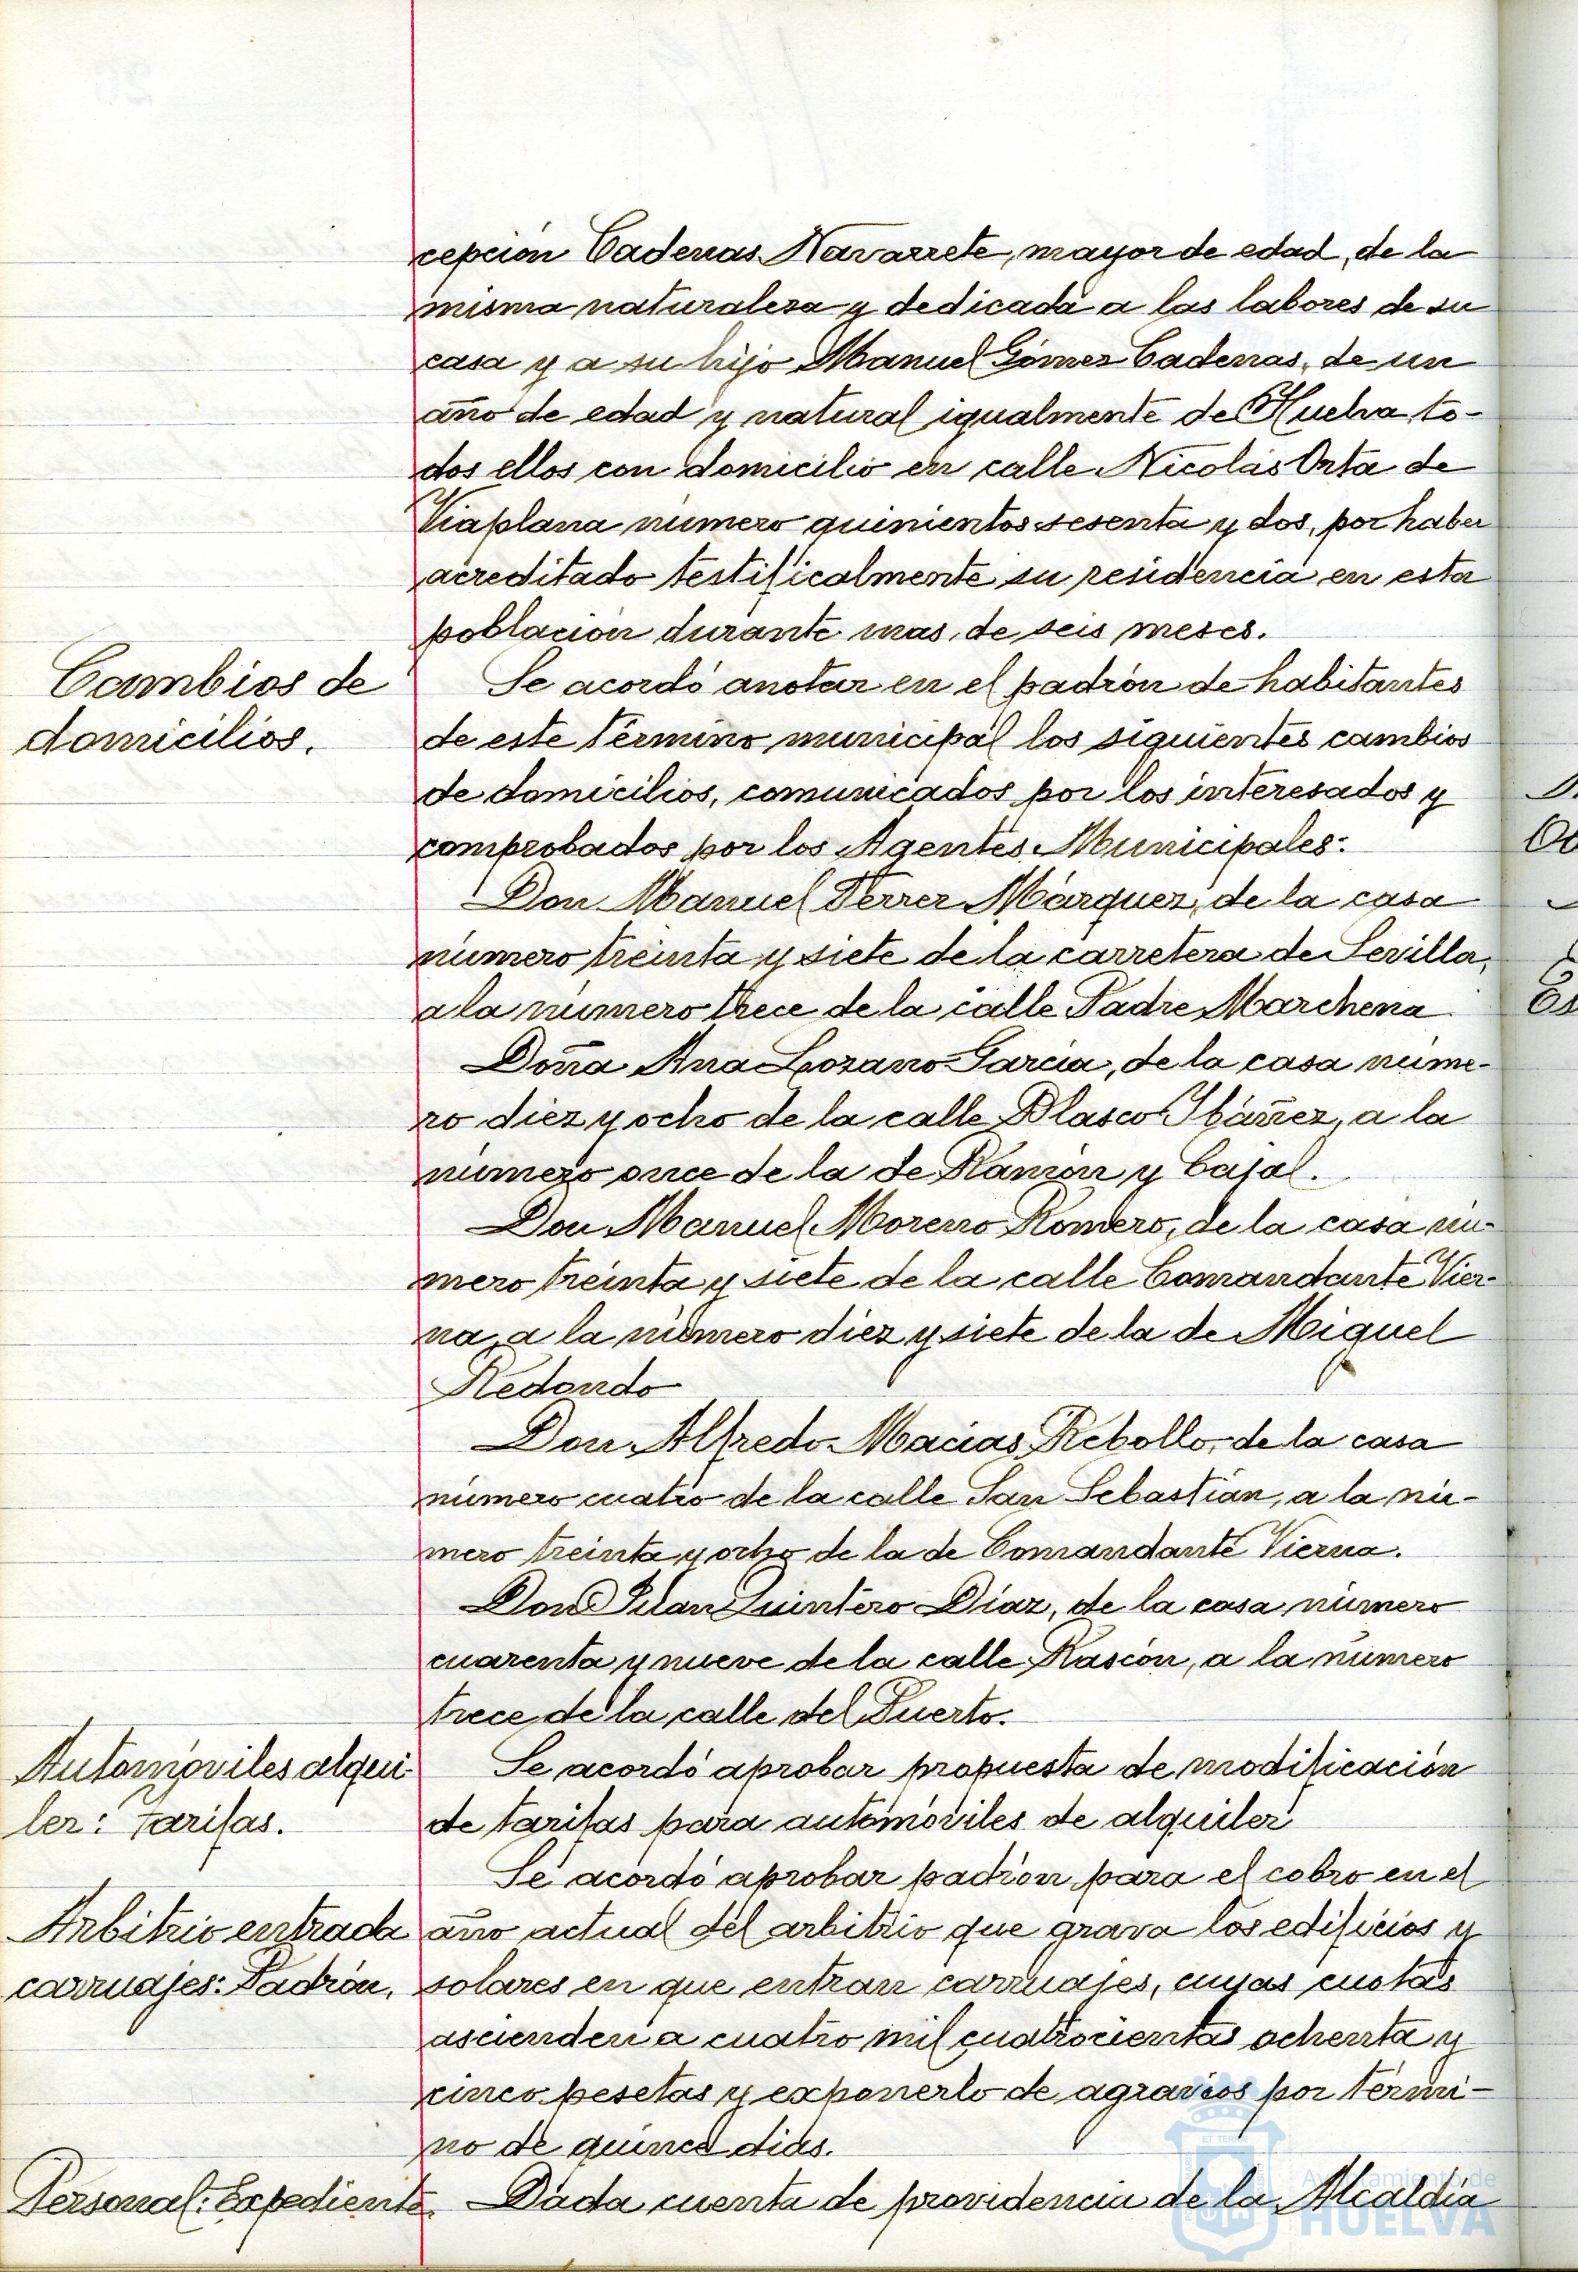 cepción Cadenas Navarrete, mayor de edad, de la
misma naturaleza y dedicada a las labores de su
casa y a su hijo Manuel Gómez Cadenas, de un
año de edad y natural igualmente de Huelva, to-
dos ellos con domicilio en calle Nicolás Orta de
Viaplana número quinientos sesenta y dos, por haber
acreditado testificalmente su residencia en esta
población durante mas de seis meses.
Cambios de
domicilios.
Se acordó anotar en el padrón de habitantes
de este término municipal los siguientes cambios
de domicilios, comunicados por los interesados y
comprobados por los Agentes Municipales:
Don Manuel Ferrer Márquez, de la casa
número treinta y siete de la carretera de Sevilla,
a la número trece de la calle Padre Marchena
Doña Ana Lozano García, de la casa núme-
ro diez y ocho de la calle Blasco Ibáñez, a la
número once de la de Ramón y Cajal.
Don Manuel Moreno Romero, de la casa nú-
mero treinta y siete de la calle Comandante Vier-
na, a la número diez y siete de la de Miguel
Redondo
Don Alfredo Macías Rebollo, de la casa
número cuatro de la calle San Sebastián, a la nú-
mero treinta y ocho de la de Comandante Vierna.
Don Juan Quintero Díaz, de la casa número
cuarenta y nueve de la calle Rascón, a la número
trece de la calle del Puerto.
Automóviles alqui-
ler: Tarifas.
Se acordó aprobar propuesta de modificación
de tarifas para automóviles de alquiler
Arbitrio entrada
carruajes: Padrón.
Se acordó aprobar padrón para el cobro en el
año actual del arbitrio que grava los edificios y
solares en que entran carruajes, cuyas cuotas
ascienden a cuatro mil cuatrocientas ochenta y
cinco pesetas y exponerlo de agravios por térmi-
no de quince dias.
Personal: Expediente.
Dada cuenta de providencia de la Alcaldía
Ayuntamiento de
HUELVA